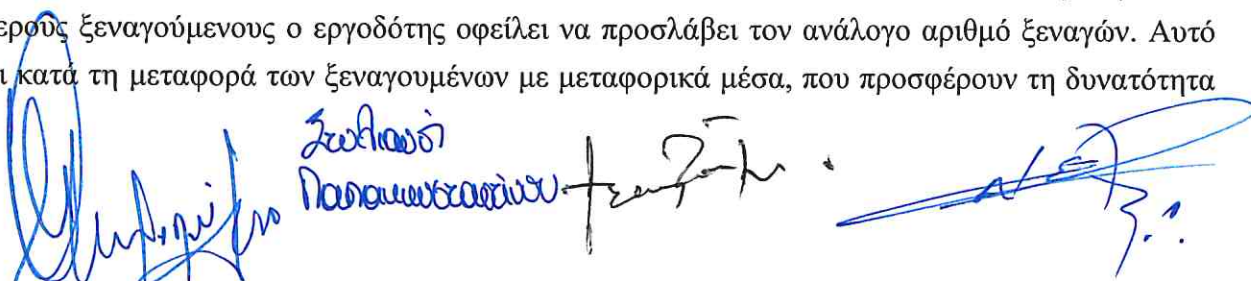 ερούς ξεναγούμενους ο εργοδότης οφείλει να προσλάβει τον ανάλογο αριθμό ξεναγών. Αυτό
ι κατά τη μεταφορά των ξεναγουμένων με μεταφορικά μέσα, που προσφέρουν τη δυνατότητα
Παπακωνσταντίνου